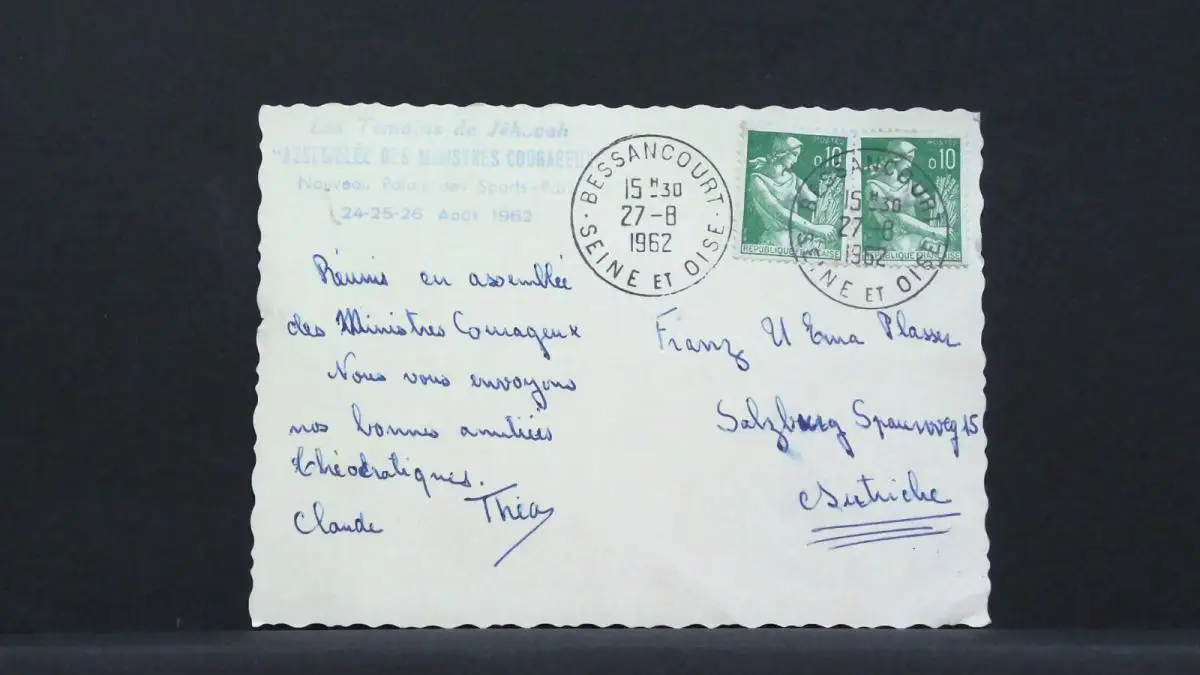 Les Témoins de Jéhovah
"ASSEMBLÉE DES MINISTRES COURAGEUX
Nouveau Palais des Sports-Paris
24-25-26 Août 1962
BESSANCOURT
15 H 30
27-8
1962
SEINE ET OISE
POSTES
0,10
RÉPUBLIQUE FRANÇAISE
POSTES
0,10
RÉPUBLIQUE FRANÇAISE
BESSANCOURT
15 H 30
27-8
1962
SEINE ET OISE
Réunis en assemblée
des Ministres Courageux
Nous vous envoyons
nos bonnes amitiées
théocratiques.
Claude Théa
Franz U Ema Plasser
Salzburg 15
Autriche